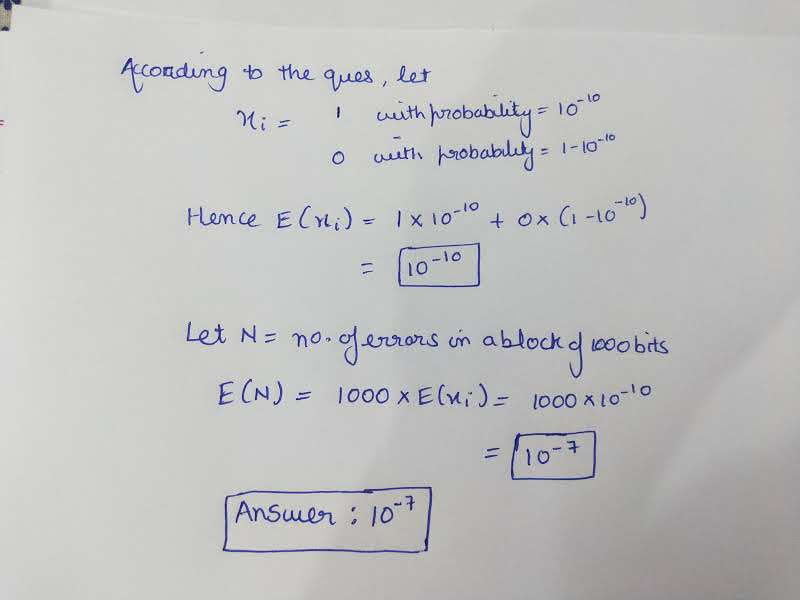 According to the ques, let
xi = 1 with probability = 10⁻¹⁰
0 with probability = 1-10⁻¹⁰
Hence E(xi) = 1 × 10⁻¹⁰ + 0 × (1-10⁻¹⁰)
= 10⁻¹⁰
Let N = no. of errors in a block of 1000 bits
E(N) = 1000 × E(xi) = 1000 × 10⁻¹⁰
= 10⁻⁷
Answer : 10⁻⁷